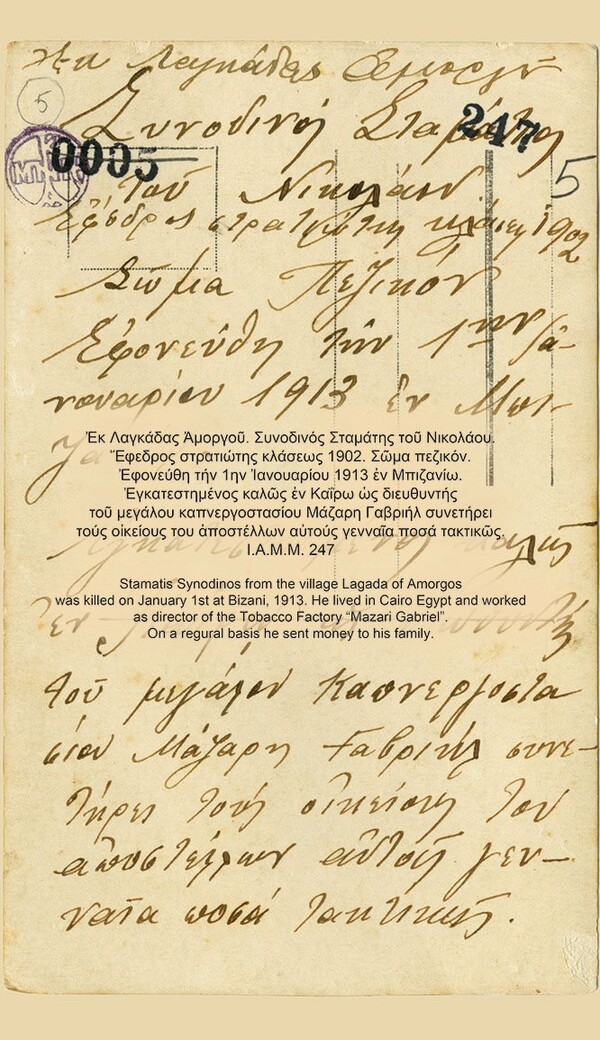 Ἐκ Λαγκάδας Ἀμοργοῦ
5
Συνοδινός Σταμάτης
247
0005
τοῦ Νικολάου
5
Ἔφεδρος στρατιώτης κλάσεως 1902
Σῶμα Πεζικόν
Ἐφονεύθη τήν 1ην Ἰα-
νουαρίου 1913 ἐν Μπι-
Ἐκ Λαγκάδας Ἀμοργοῦ. Συνοδινός Σταμάτης τοῦ Νικολάου.
Ἔφεδρος στρατιώτης κλάσεως 1902. Σῶμα πεζικόν.
Ἐφονεύθη τήν 1ην Ἰανουαρίου 1913 ἐν Μπιζανίω.
Ἐγκατεστημένος καλῶς ἐν Καΐρω ὡς διευθυντής
τοῦ μεγάλου καπνεργοστασίου Μάζαρη Γαβριήλ συνετήρει
τούς οἰκείους του ἀποστέλλων αὐτούς γενναῖα ποσά τακτικῶς.
Ι.Α.Μ.Μ. 247
καλῶς
Stamatis Synodinos from the village Lagada of Amorgos
was killed on January 1st at Bizani, 1913. He lived in Cairo Egypt and worked
as director of the Tobacco Factory “Mazari Gabriel”.
On a regural basis he sent money to his family.
ἐν
τοῦ μεγάλου Καπνεργοστα
σίου Μάζαρη Γαβριήλ συνε-
τήρει τούς οἰκείους του
ἀποστέλλων αὐτούς γεν-
ναῖα ποσά τακτικῶς.